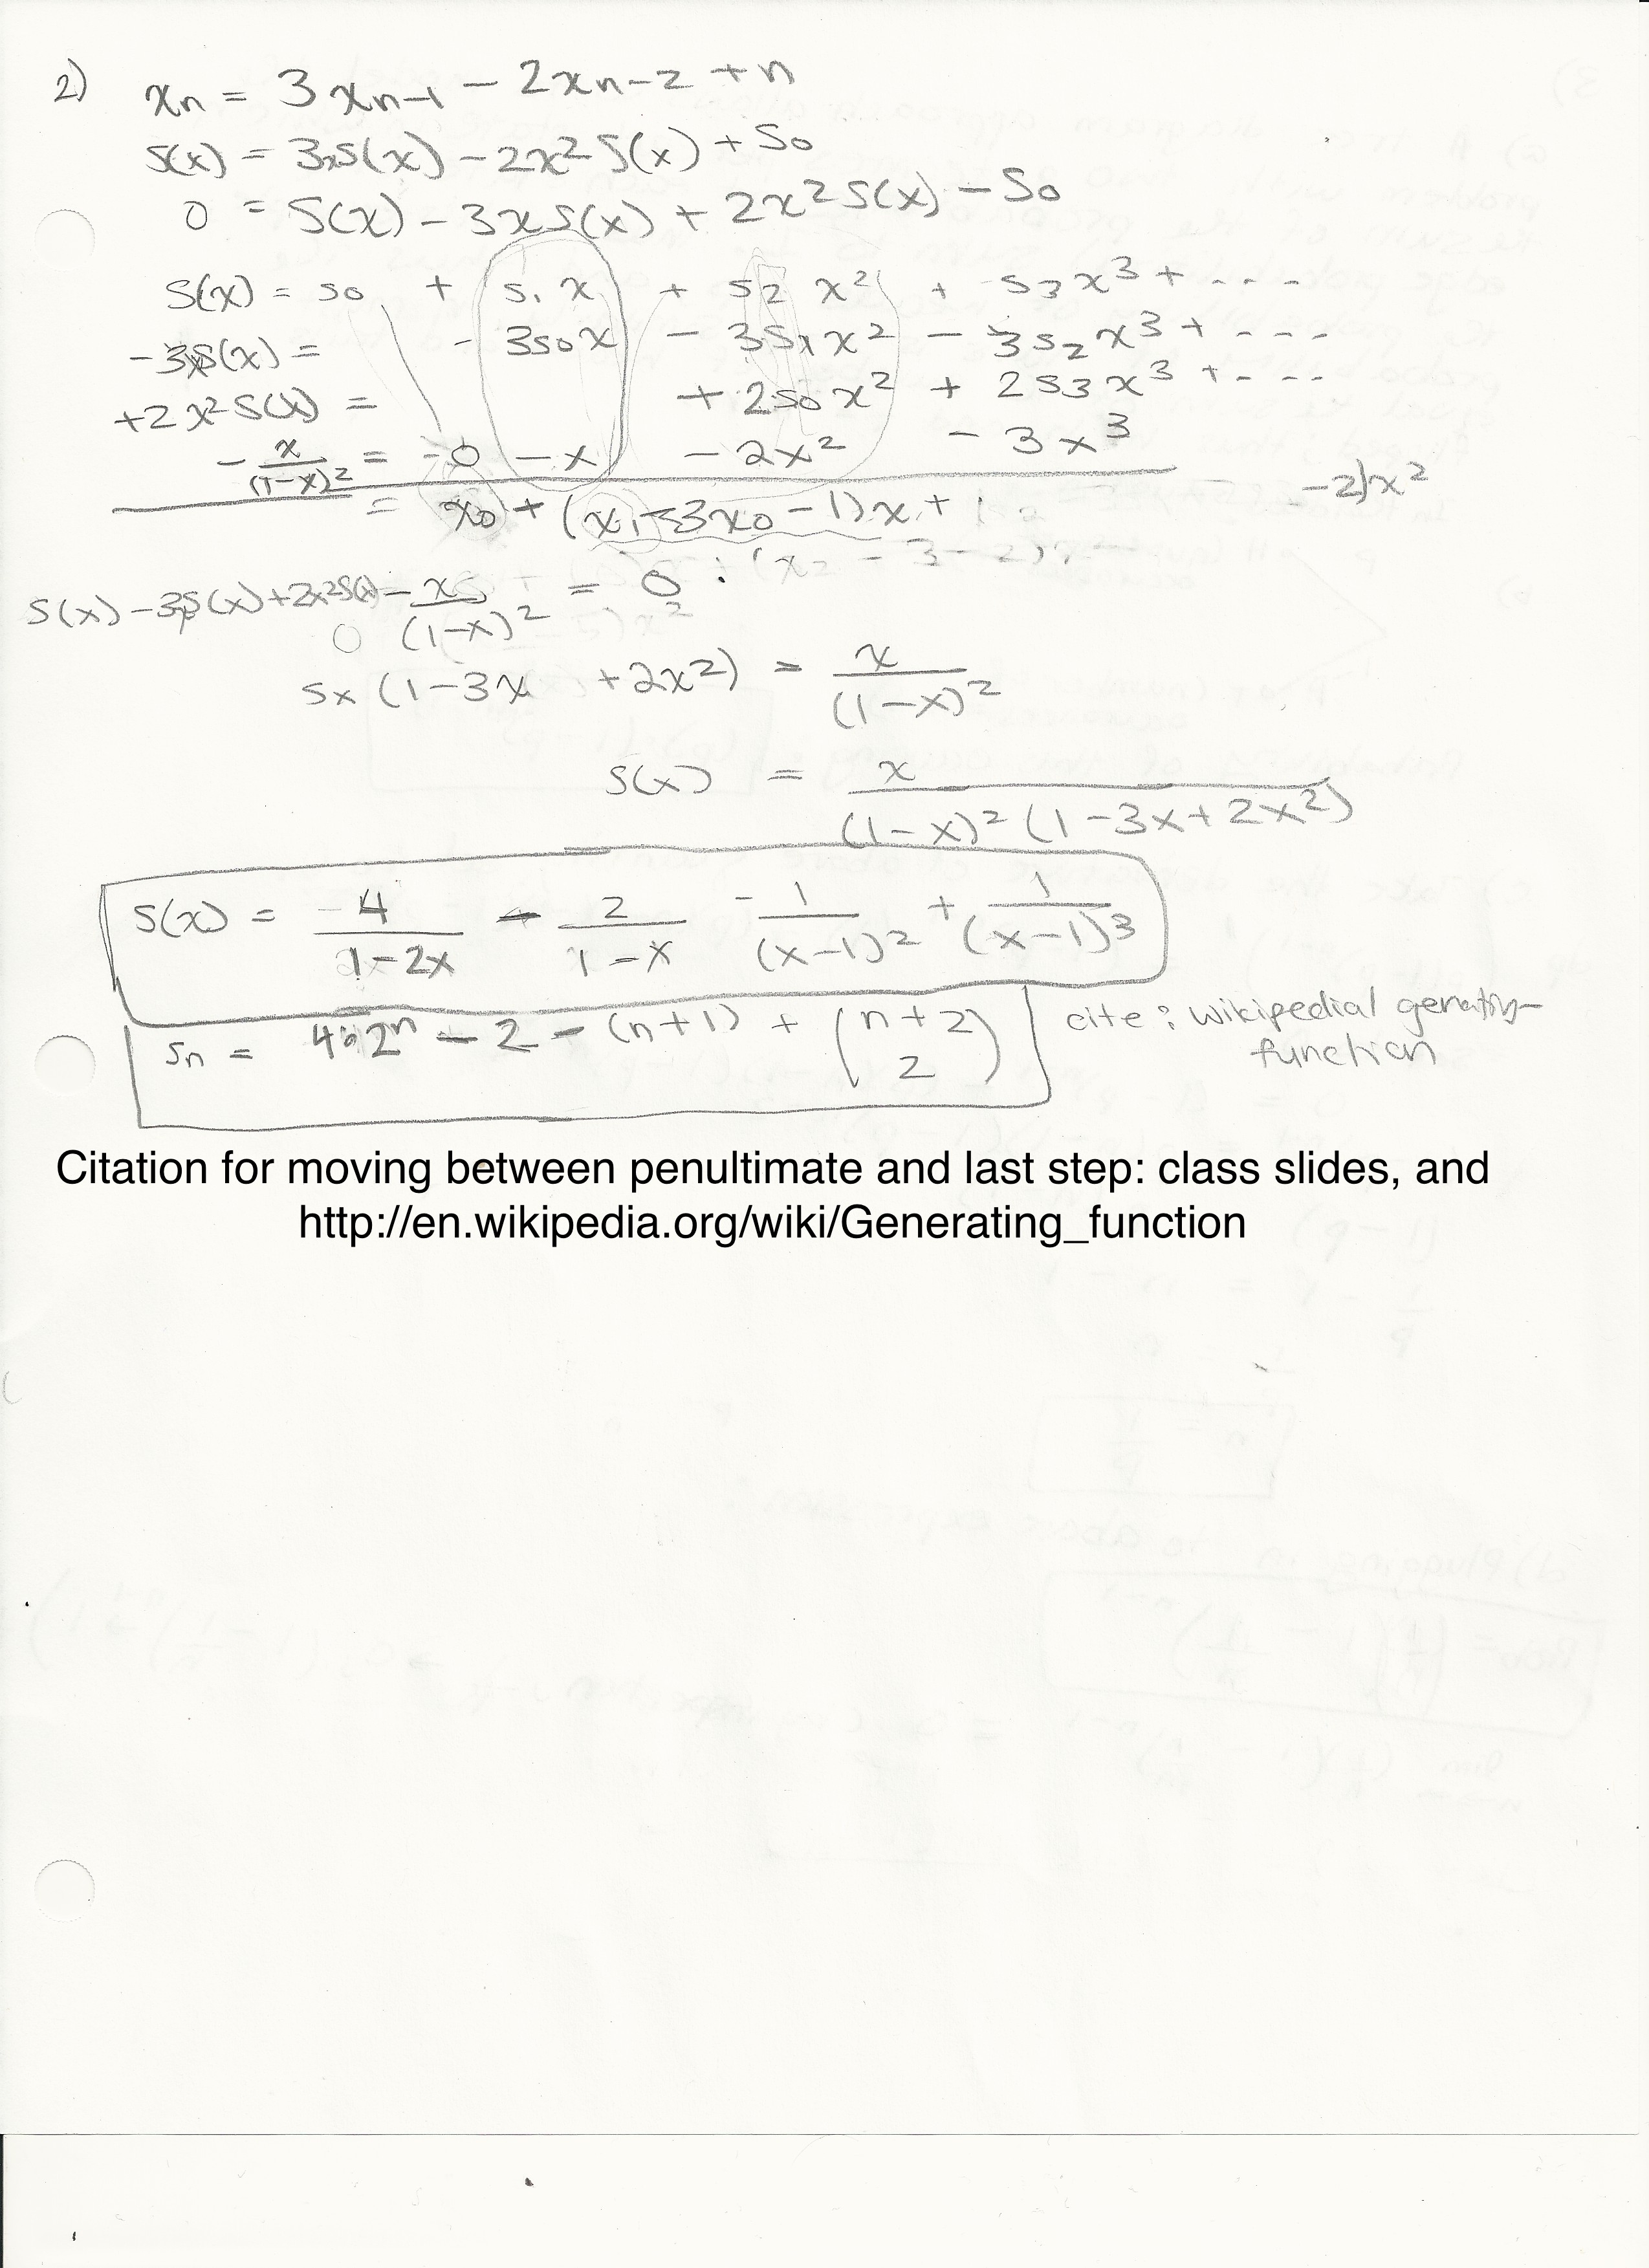 2) xn = 3xn-1 - 2xn-2 + n
S(x) = 3xS(x) - 2x² S(x) + S0
0 = S(x) - 3xS(x) + 2x² S(x) - S0
S(x) = s0 + s1 x + s2 x² + s3 x³ + ....
-3xS(x) = - 3s0x - 3s1x² - 3s2x³ + ...
+2x² S(x) = + 2s0x² + 2s3x³ + ....
- x/(1-x)² = -0 - x - 2x² - 3x³
= x0 + (x1 - 3x0 - 1)x +
-2)x²
S(x) - 3xS(x) + 2x²S(x) - x/(1-x)² = 0
Sx (1 - 3x + 2x²) = x/(1-x)²
S(x) = x/((1-x)² (1-3x+2x²))
S(x) = 4/(1-2x) - 2/(1-x) - 1/(x-1)² + 1/(x-1)³
sn = 4·2ⁿ - 2 - (n+1) + (n+2 2)
cite: wikipedia
function
Citation for moving between penultimate and last step: class slides, and
http://en.wikipedia.org/wiki/Generating_function